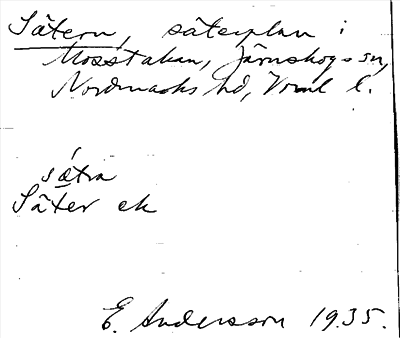 Sätern, säterplan i
Mosstakan, Järnskogs sn,
Nordmarks hd, Vrml l.
sætra
Säter ek
E. Andersson 1935.